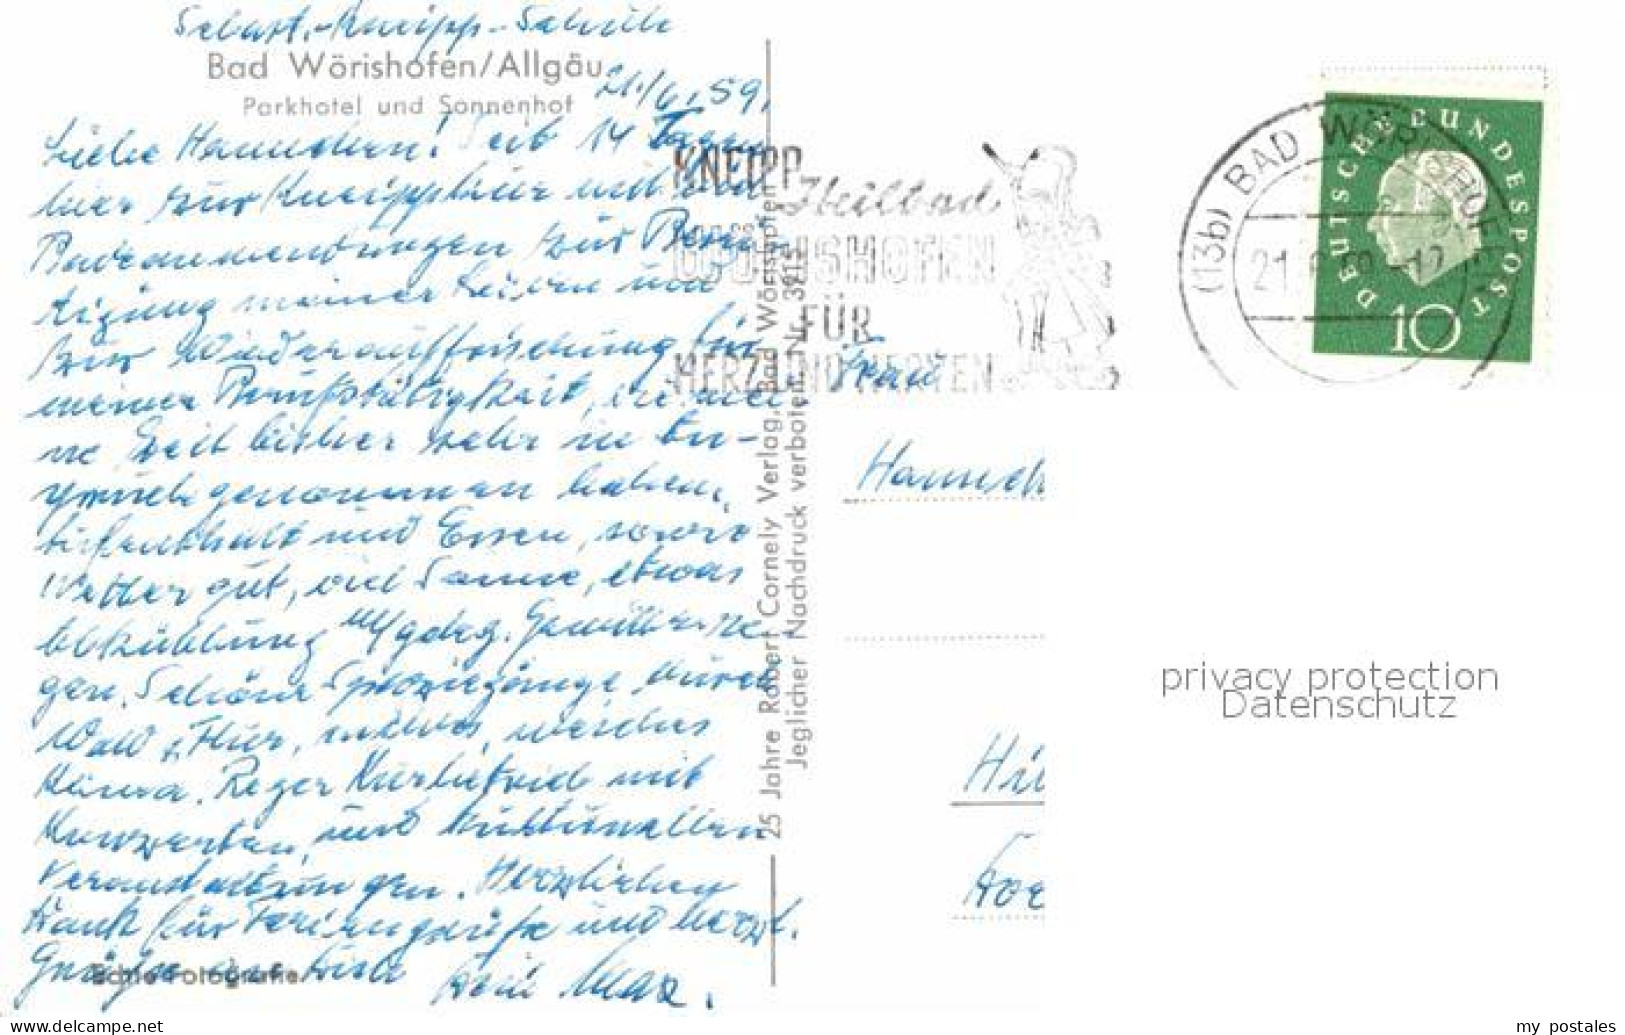 Sebast.-Kneipp-Schule
Bad Wörishofen/Allgäu
Parkhotel und Sonnenhof
21./6.59.
Liebe Hannchen! Seit 14 Tagen
hier zur Kneippkur und
Badeanwendungen zur
meiner und
zur Wiederauffrischung für
meiner Berufstätigkeit, die mei-
ne Zeit bisher sehr in An-
spruch genommen haben.
Aufenthalt und Essen, sowie
Wetter gut, viel Sonne, etwas
Abkühlung Gewitterre-
gen. Schöne Spaziergänge durch
Wald
Klima. Reger Kurbetrieb mit
Konzerten, und kulturellen
Veranstaltungen. Herzlichen
Dank für Feriengrüße und herzl.
Grüße Dein Max.
Echte Fotografie
25 Jahre Robert Cornely Verlag, Bad Wörishofen
Jeglicher Nachdruck verboten. Nr. 3915
KNEIPP
Heilbad
WÖRISHOFEN
FÜR
HERZ UND NERVEN
(13b) BAD WÖRISHOFEN
21.6.59-17
DEUTSCHE BUNDESPOST
10
Frau
Hannch
Hil
privacy protection
Datenschutz
my postales